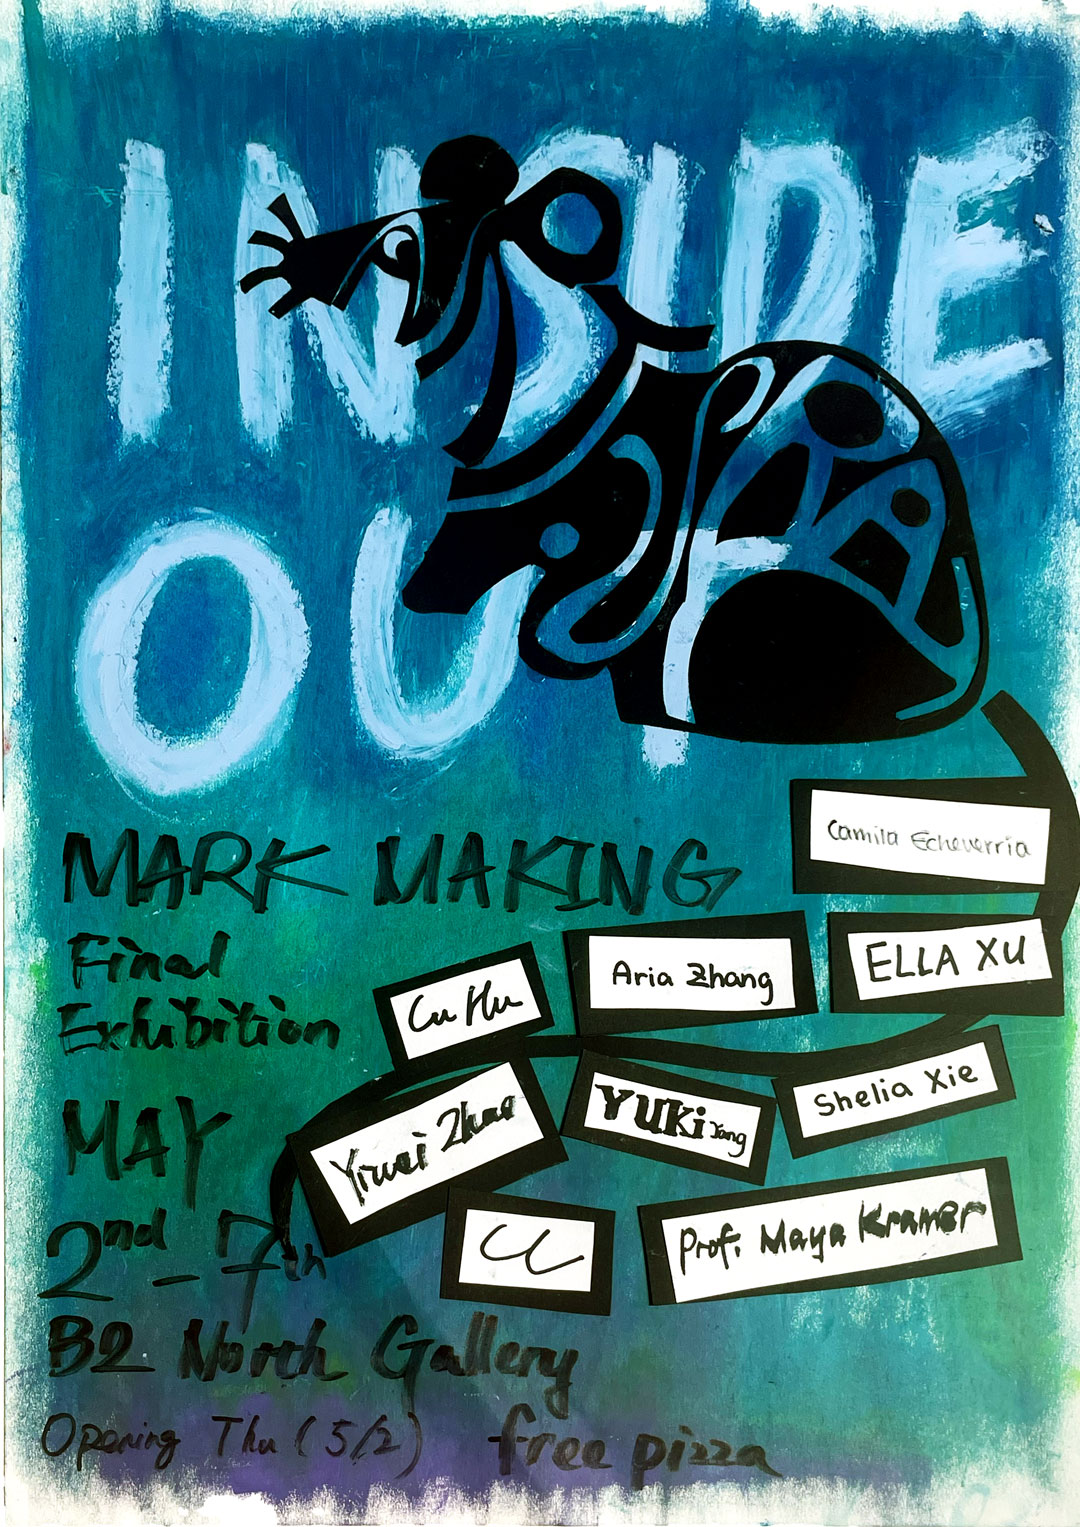 INSIDE
OUT
MARK MAKING
Final
Exhibition
MAY
2nd - 7th
B2 North Gallery
Opening Thu (5/2) free pizza
Camila Echeverria
ELLA XU
Aria Zhang
Cu Hu
Shelia Xie
YUKi Yang
Yiwei Zhao
Prof. Maya Kramer